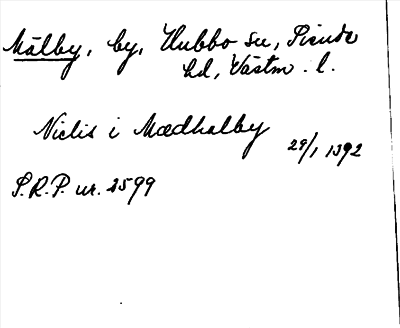 Mälby, by, Hubbo sn, Siende
hd, Västm. l.
Niclis i Mædhalby
29/1 1392
S.R.P. nr. 2599